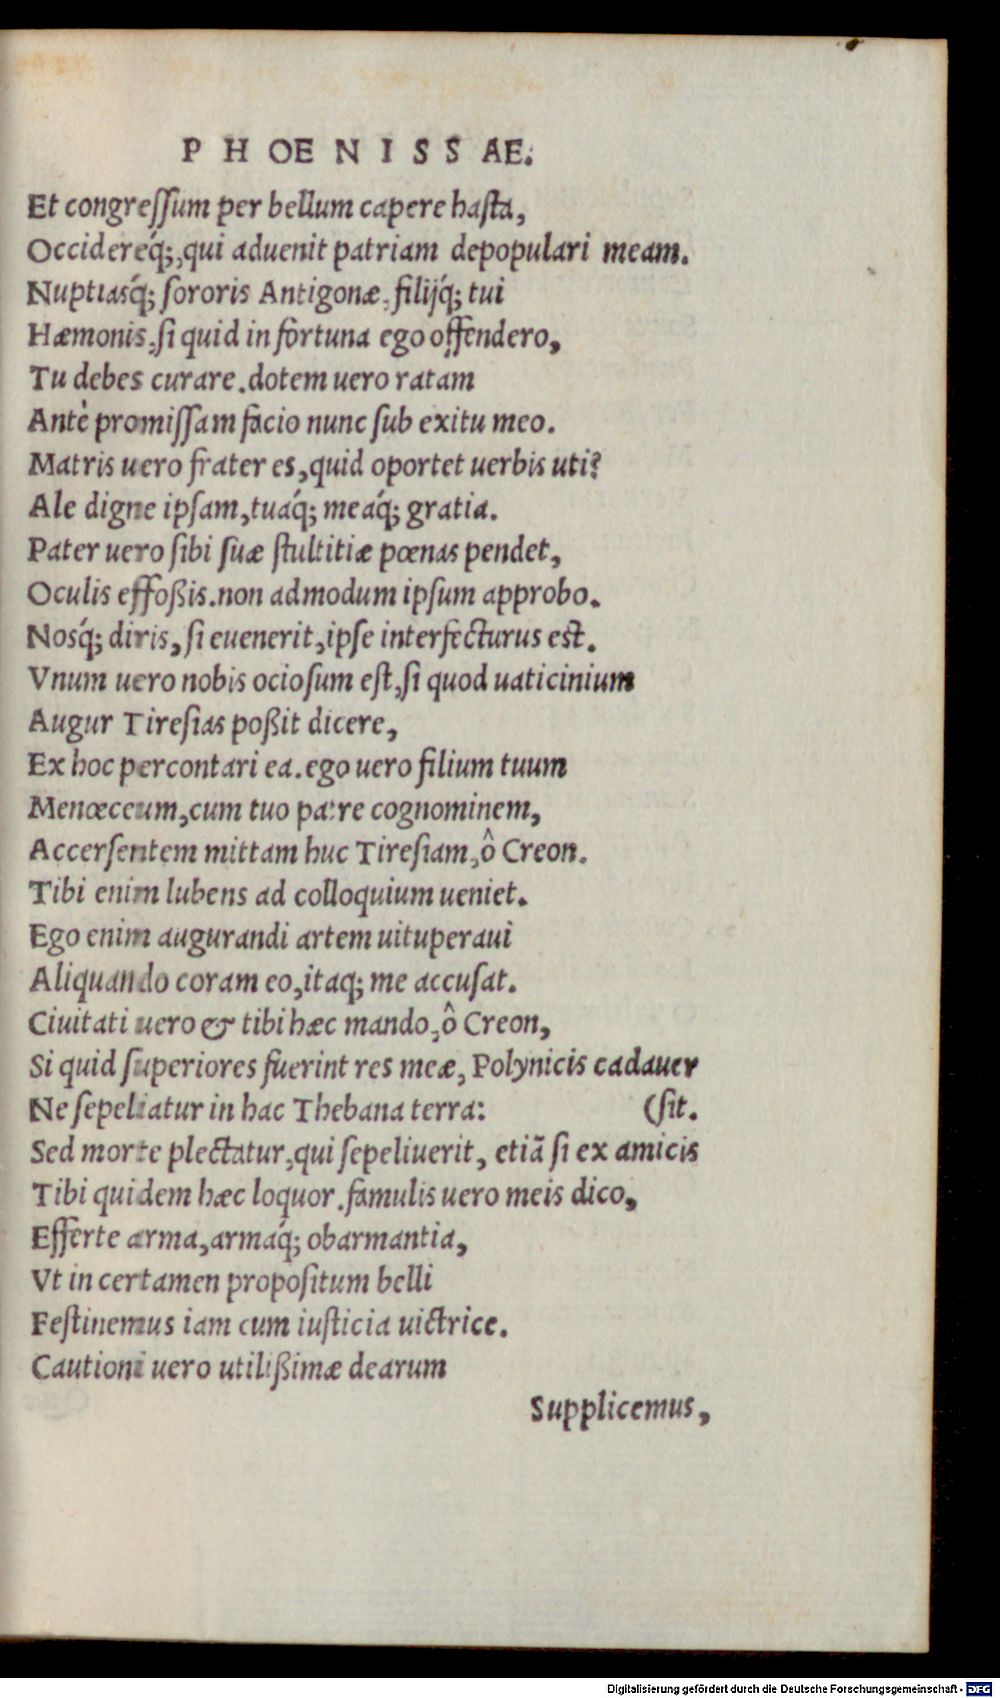 PHOENISSAE.
Et congressum per bellum capere hasta,
Occidereq́;,qui aduenit patriam depopulari meam.
Nuptiasq́; sororis Antigonæ, filijq́; tui
Hæmonis,si quid in fortuna ego offendero,
Tu debes curare.dotem uero ratam
Antè promissam facio nunc sub exitu meo.
Matris uero frater es,quid oportet uerbis uti?
Ale digne ipsam,tuaq́; meaq́; gratia.
Pater uero sibi suæ stultitiæ pœnas pendet,
Oculis effoßis.non admodum ipsum approbo.
Nosq́; diris, si euenerit,ipse interfecturus est.
Vnum uero nobis ociosum est,si quod uaticinium
Augur Tiresias poßit dicere,
Ex hoc percontari ea.ego uero filium tuum
Menœceum,cum tuo patre cognominem,
Accersentem mittam huc Tiresiam,ô Creon.
Tibi enim lubens ad colloquium ueniet.
Ego enim augurandi artem uituperaui
Aliquando coram eo,itaq; me accusat.
Ciuitati uero & tibi hæc mando,ô Creon,
Si quid superiores fuerint res meæ, Polynicis cadauer
Ne sepeliatur in hac Thebana terra: (sit.
Sed morte plectatur,qui sepeliuerit, etiã si ex amicis
Tibi quidem hæc loquor.famulis uero meis dico,
Efferte arma,armaq́; obarmantia,
Vt in certamen propositum belli
Festinemus iam cum iusticia uictrice.
Cautioni uero utilißimæ dearum
Supplicemus,
Digitalisierung gefördert durch die Deutsche Forschungsgemeinschaft - DFG